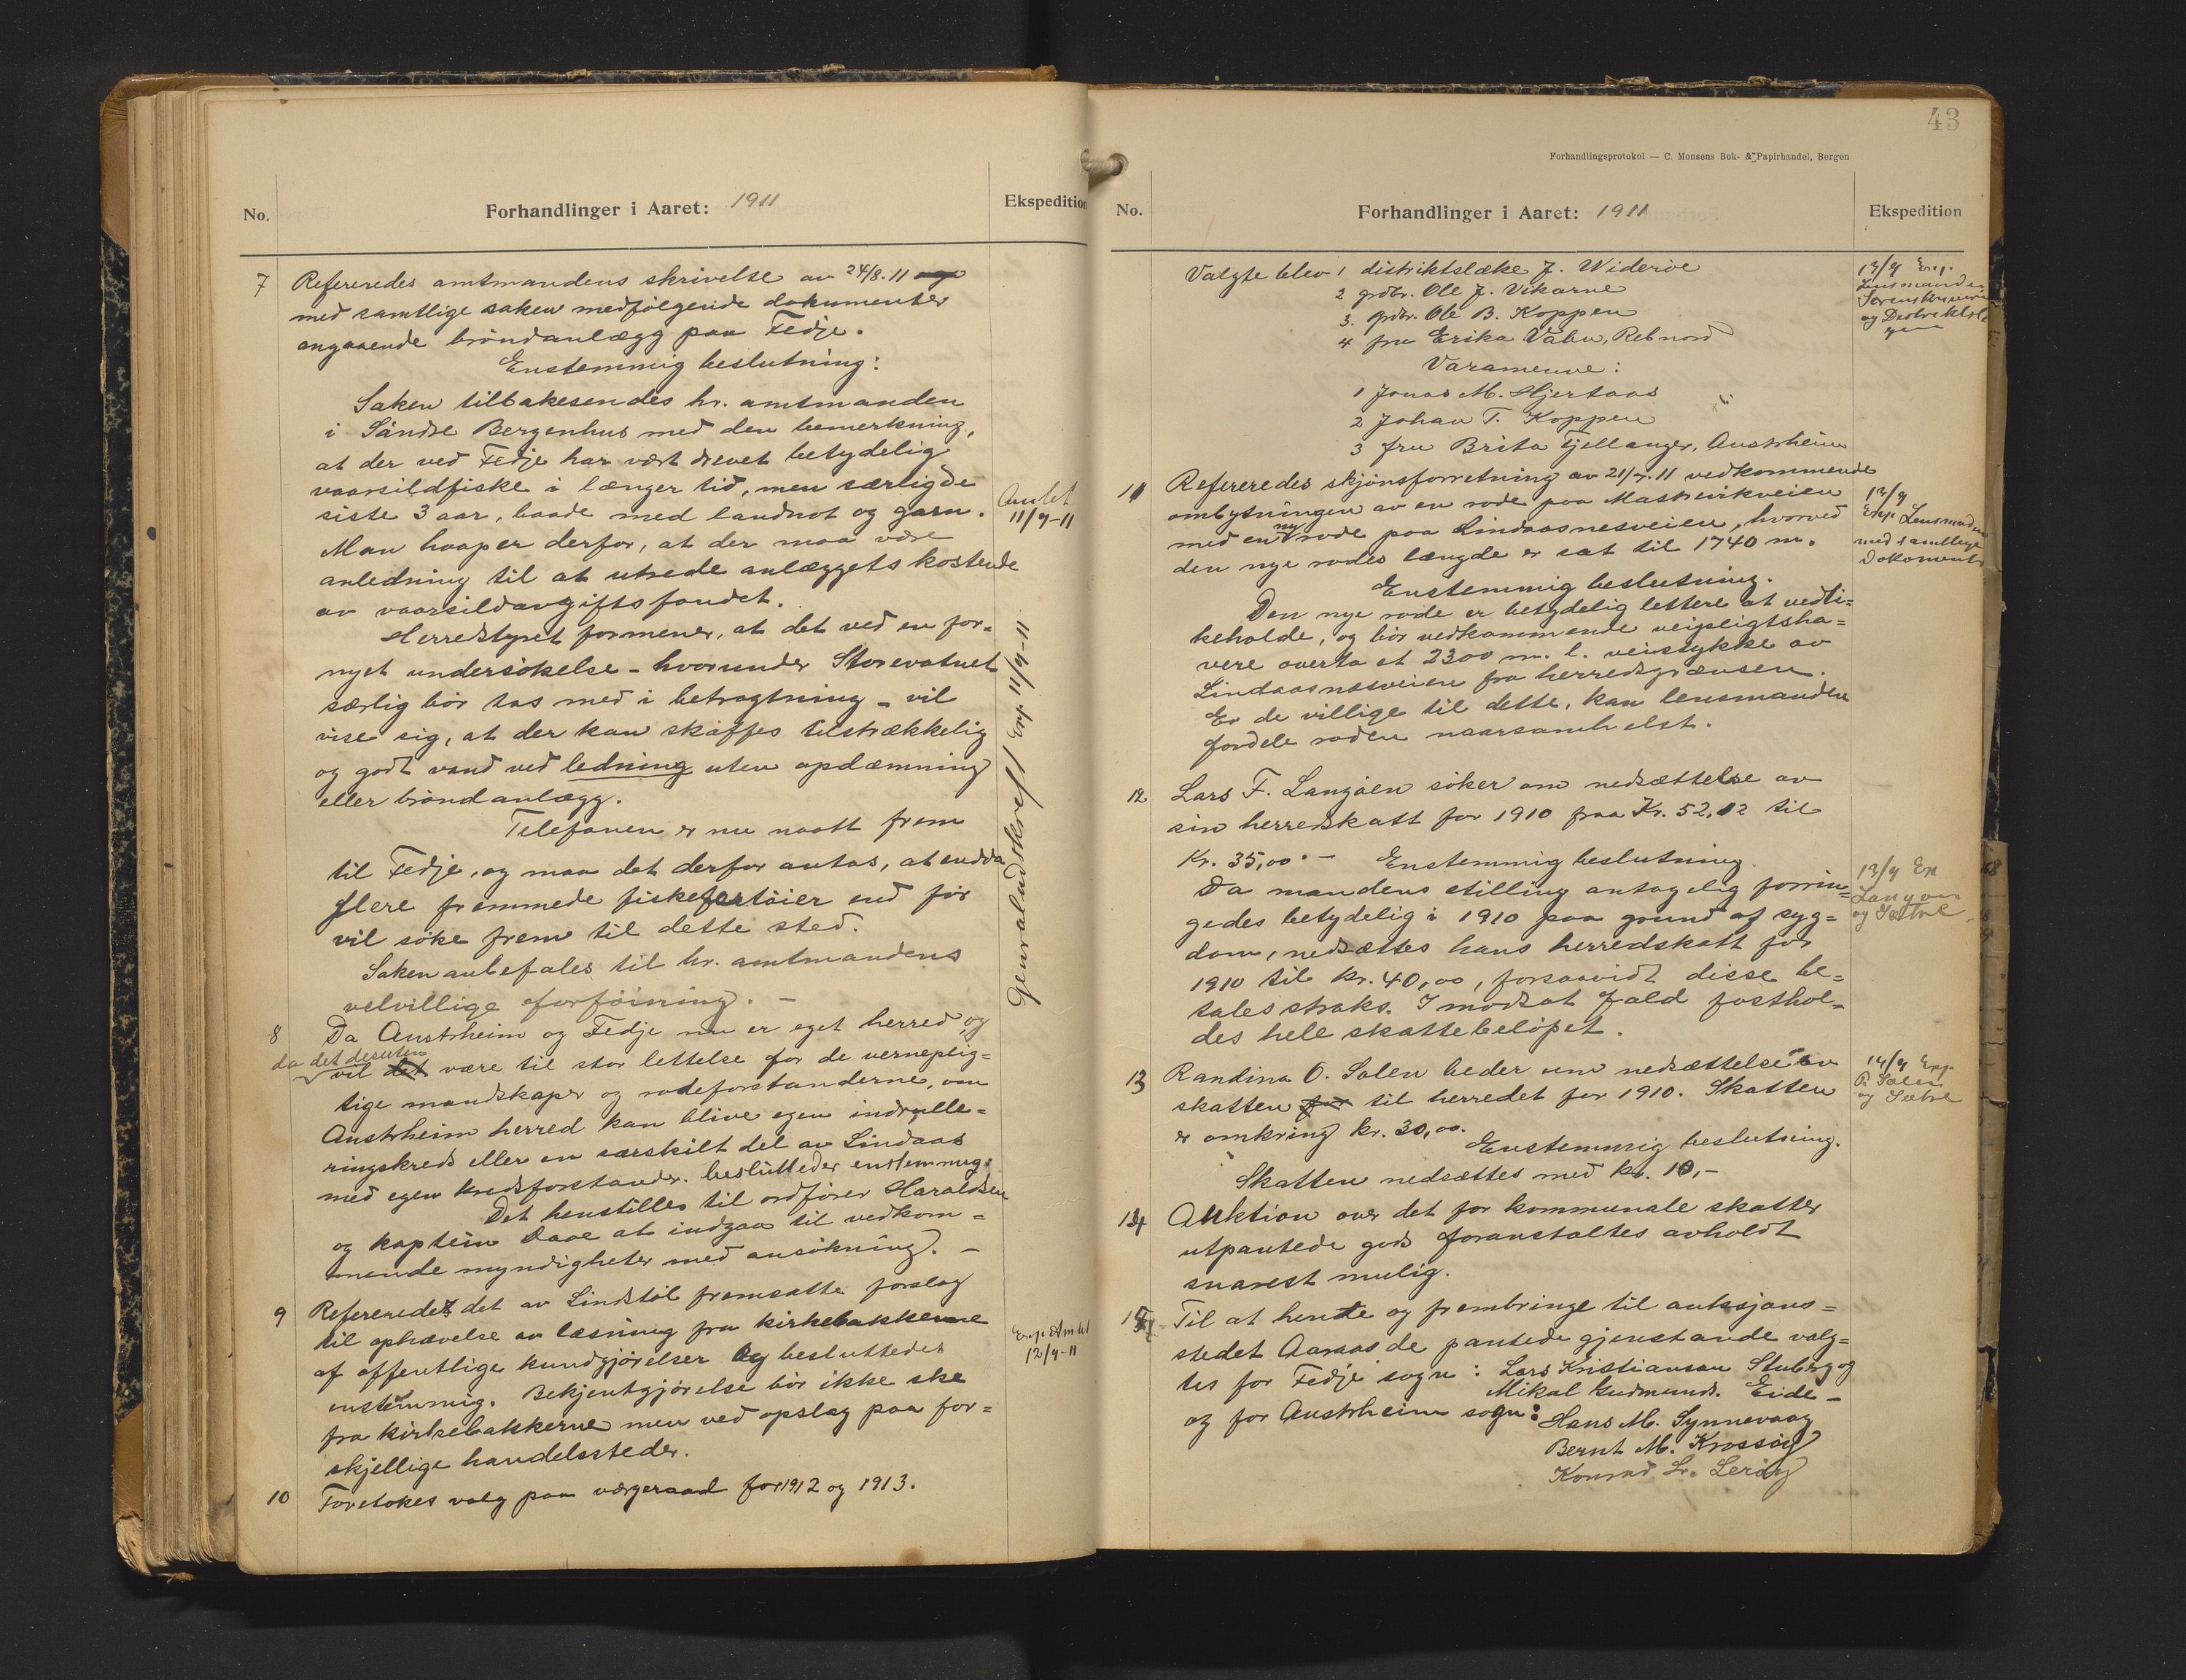 No.
Forhandlinger i Aaret: 1911
Ekspedition
7 Refereredes amtmandens skrivelse av 24/8.11
med samtlige saken medfølgende dokumenter
angaaende brøndanlægg paa Fedje.
Enstemmig beslutning:
Saken tilbakesendes hr. amtmanden
i Søndre Bergenhus med den bemerkning,
at der ved Fedje har vært drevet betydelig
vaarsildfiske i længer tid, men særlig de
siste 3 aar, baade med landnot og garn.
Amtet
11/9-11
Man haaper derfor, at der maa være
anledning til at utrede anlæggets kostende
av vaarsildavgiftsfondet.
Herredstyret formener, at det ved en for=
nyet undersøkelse - hvorunder Storevatnet
særlig bør tas med i betragtning - vil
vise sig, at der kan skaffes tilstrækkelig
og godt vand ved ledning uten opdæmning
eller brøndanlægg.
Telefonen er nu naatt frem
til Fedje, og maa det derfor antas, at endda
flere fremmede fiskefartøier end før
vil søke frem til dette sted.
Saken anbefales til hr. amtmandens
velvillige forføining. -
Genraludskrift Exp. 11/9-11
8 Da Austrheim og Fedje nu er eget herred og
da det desuten
vil det være til stor lettelse for de verneplig=
tige mandskaper og rodeforstanderne, om
Austrheim herred kan blive egen indrulle=
ringskreds eller en særskilt del av Lindaas
med egen kredsforstander. beslutteder enstemmig:
Det henstilles til ordfører Haraldsen
og kaptein Daae at indgaa til vedkom=
mende myndigheter med ansøkning. -
9 Refereredes det av Lindtøl fremsatte forslag
til ophævelse av læsning fra kirkebakkerne
af offentlige kundgjørelser Og besluttedes
enstemmig. Bekjentgjørelse bør ikke ske
fra kirkebakkerne men ved opslag paa for=
skjellige handelssteder.
Exp. Amtet
12/9-11
10 Foretokes valg paa værgeraad for 1912 og 1913.
43
Forhandlingsprotokol — C. Monsens Bok- & Papirhandel, Bergen
No.
Forhandlinger i Aaret: 1911
Ekspedition
Valgte blev 1 distriktslæke J. Widerøe
2 grdbr. Ole J. Vikarne
3. grdbr. Ole B. Koppen
4 fru Erika Vabø, Rebnord
13/9 Exp.
Lensmanden
Sorenskriveren
og Destriktslæ
gen
Varamenne:
1 Jonas M. Hjertaas
2 Johan T. Koppen
3 fru Brita Fjellanger, Austrheim
11 Refereredes skjønsforretning av 21/7.11 vedkommende
ombytningen av en rode paa Mastrevikveien
med en ny rode paa Lindaasnesveien, hvorved
den nye rodes længde er sat til 1740 m.
13/9
Exp Lensmanden
med samtlige
Dokomenter
Enstemmig beslutning.
Den nye rode er betydelig lettere at vedli=
keholde, og bør vedkommende veipligtsha=
vere overta et 2300 m. l. veistykke av
Lindaasnæsveien fra herredsgrænsen.
Er de villige til dette, kan lensmanden
fordele roden naarsomhelst.
12 Lars F. Langøen søker om nedsættelse av
sin herredskatt for 1910 fra Kr. 52,12 til
Kr. 35,00. - Enstemmig beslutning.
Da mandens stilling antagelig forrin=
gedes betydelig i 1910 paa grund af syg=
dom, nedsættes hans herredskatt for
1910 til kr. 40,00, forsaavidt disse be=
tales straks. I modsat Fald fasthol=
des hele skattebeløpet.
13/9 Ex
Langøen
og Sætre
13 Randina O. Solen beder um nedsættelse av
skatten for til herredet for 1910. Skatten
er omkring kr. 30,00.
Enstemmig beslutning.
Skatten nedsættes med kr. 10,-
14/9 Exp.
R Solen
og Sætre
14 Auktion over det for kommunale skatter
utpantede gods foranstaltes avholdt
snarest mulig.
15 Til at hente og frembringe til auksjons=
stedet Aaraas de pantede gjenstande valg=
tes for Fedje sogn: Lars Kristiansen Stuberg og
Mikal Gudmunds. Eide -
og for Austrheim sogn: Hans M. Synnevaag
Bernt M. Krossøy
Konrad Lr. Lerøy